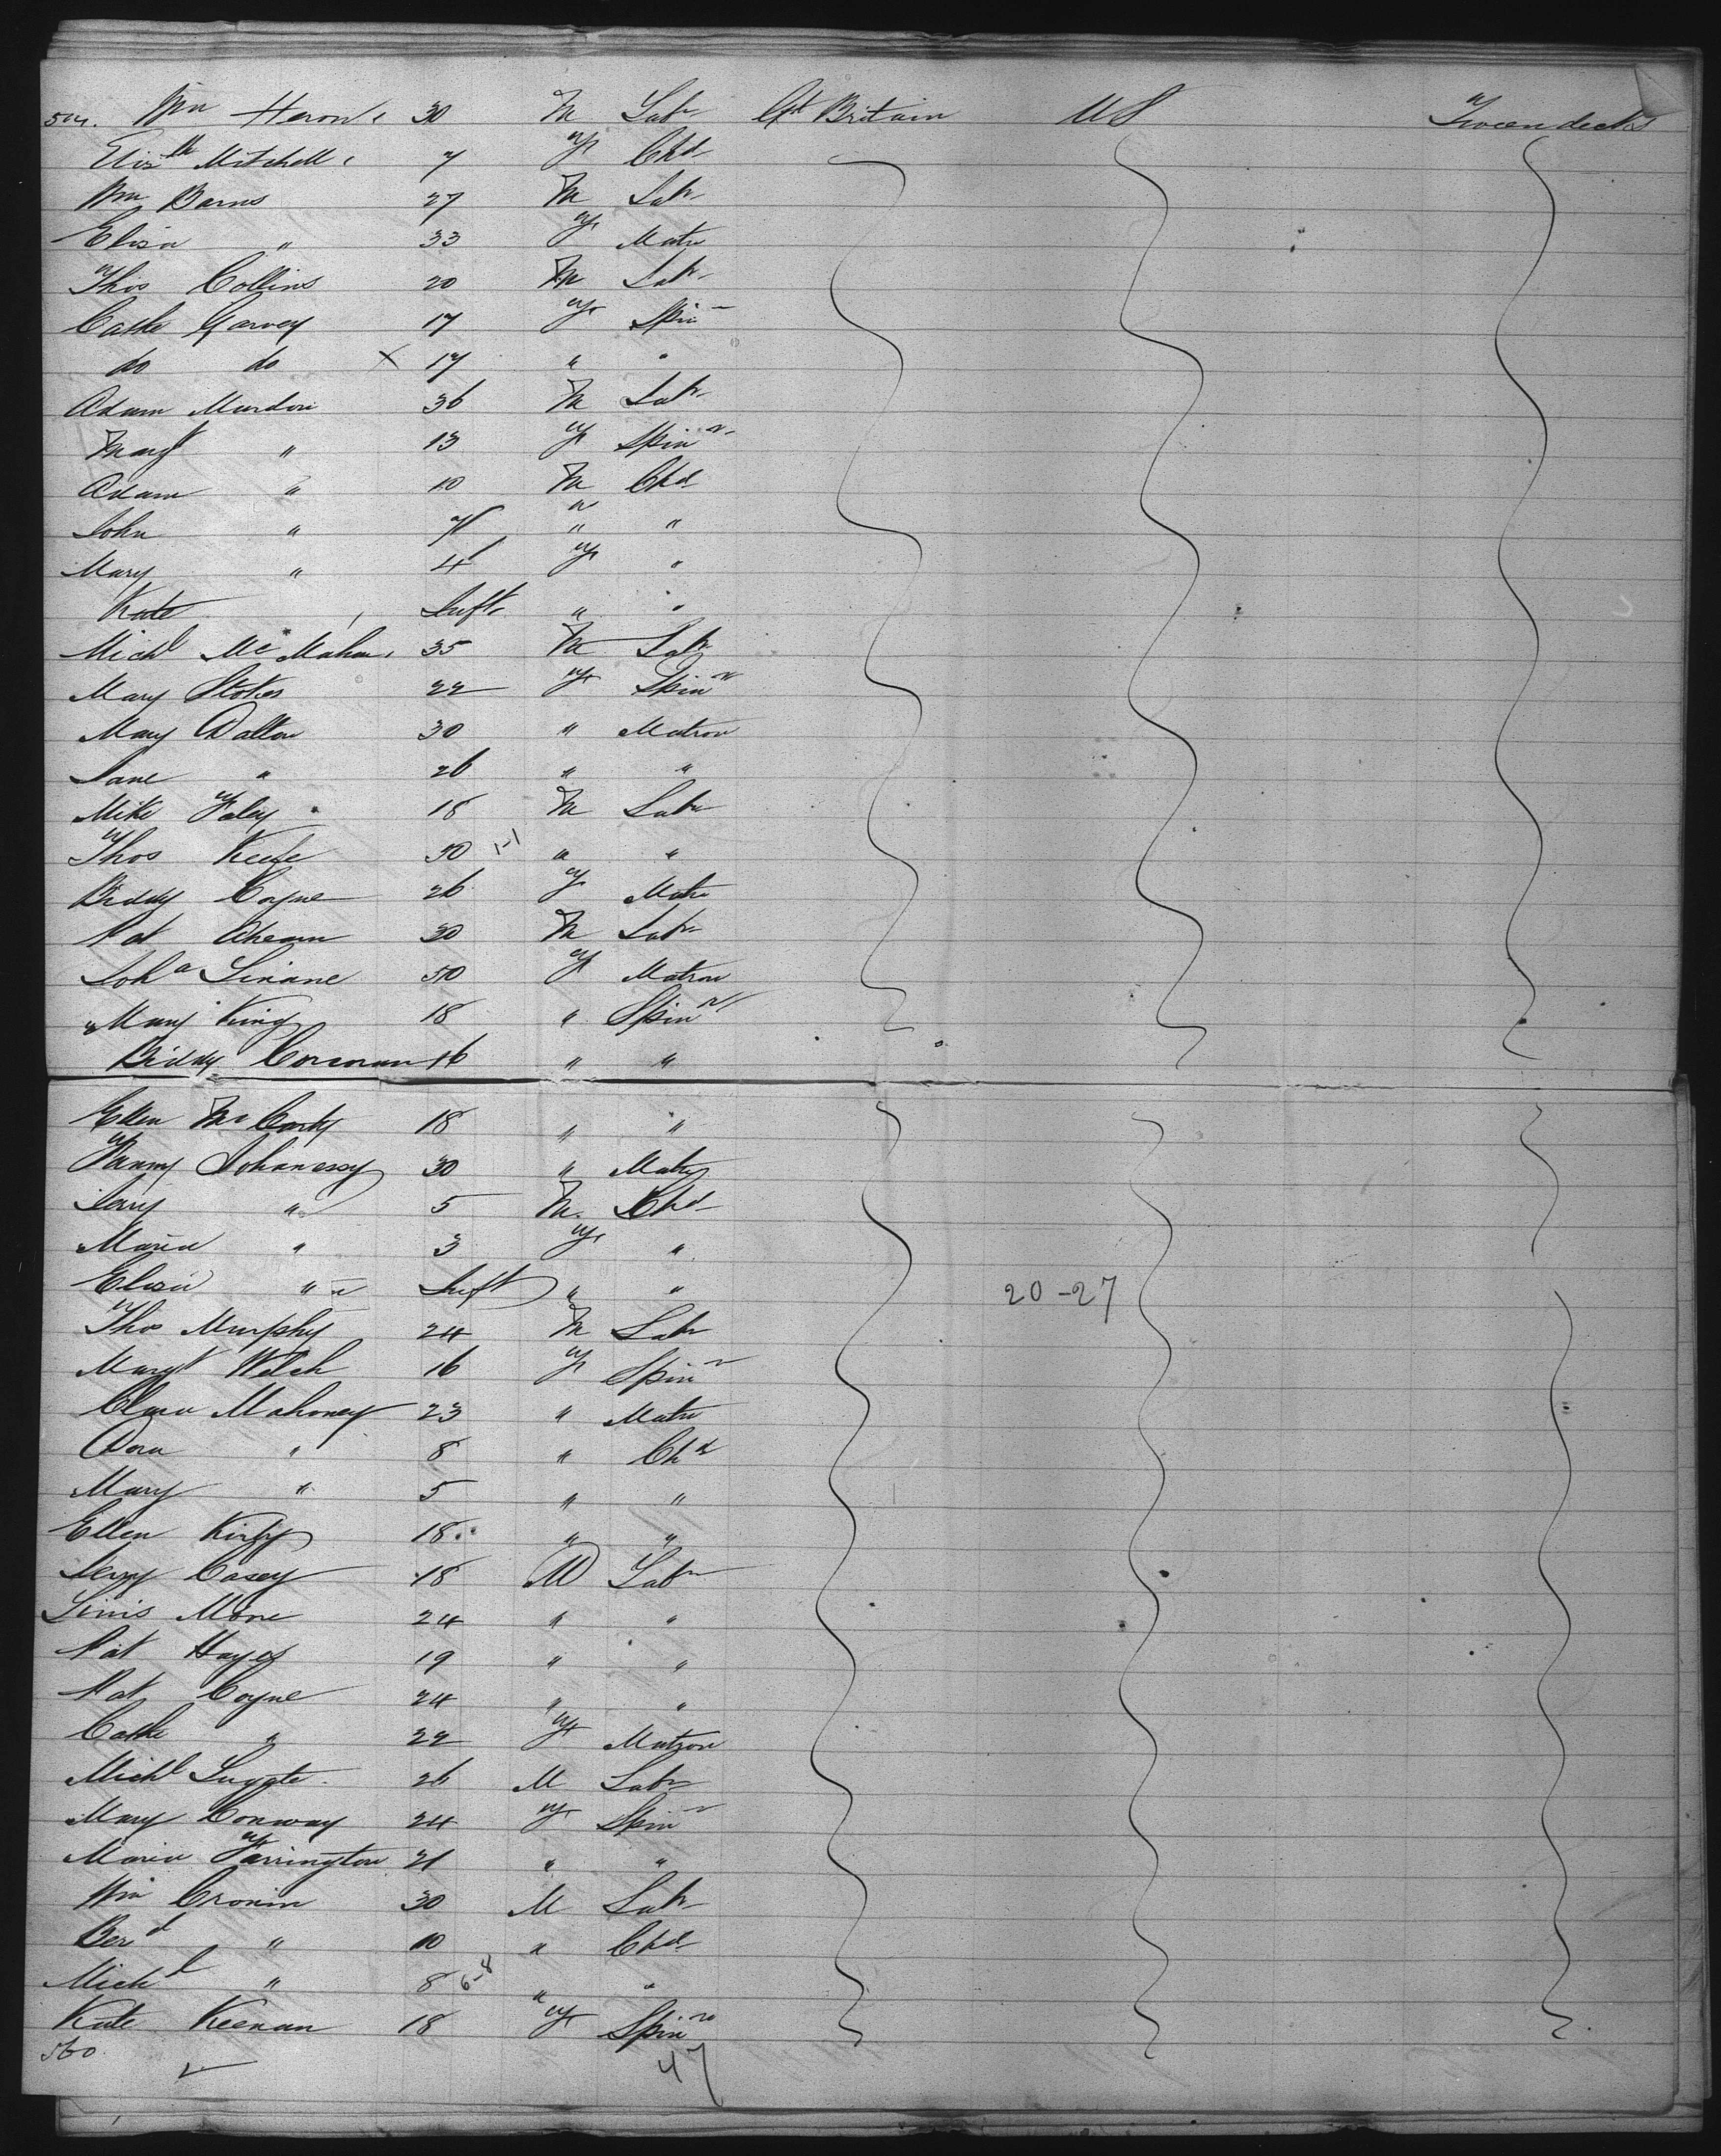 514. Wm Heron 30 M Labr Gt Britain US Tween decks
Elizth Mitchell 7 F Chd
Wm Barns 27 M Labr
Eliza " 33 F Matn
Thos Collins 20 M Labr
Cathe Garvey 17 F Spinr
do do X 17 " "
Adam 36 M Labr
Margt " 13 F Spinr
Adam " 10 M Chd
John " 7 " "
Mary " 4 F "
Kate Inft " "
Michl McMahon 35 M Labr
Mary Stokes 22 F Spinr
Mary Dalton 30 " Matron
Jane " 26 " "
Mike Foley 18 M Labr
Thos Keefe 30 1-1 " "
Biddy Coyne 26 F Matn
Pat Ahearn 30 M Labr
Joha Linane 50 F Matron
Mary King 18 " Spinr
Biddy Corcoran 16 " "
Ellen McCarty 18 " "
Fanny 30 " Matn
Jerry " 5 M. Chd
Maria " 3 F "
Eliza " Inft " " 20-27
Thos Murphy 24 M Labr
Margt Welch 16 F Spinr
Clara Mahoney 23 " Matn
Dora " 8 " Chd
Mary " 5 " "
Ellen Kirby 18 " "
Jerry Casey 18 M Labr
24 " "
Pat Hayes 19 " "
Pat Coyne 24 " "
Cathe " 22 F Matron
Michl 26 M Labr
Mary Conway 24 F Spinr
Maria Farrington 21 " "
Wm Cronin 30 M Labr
Berd " 10 " Chd
Michl " 8 6-8 " "
Kate Keenan 18 F Spinr
560 47